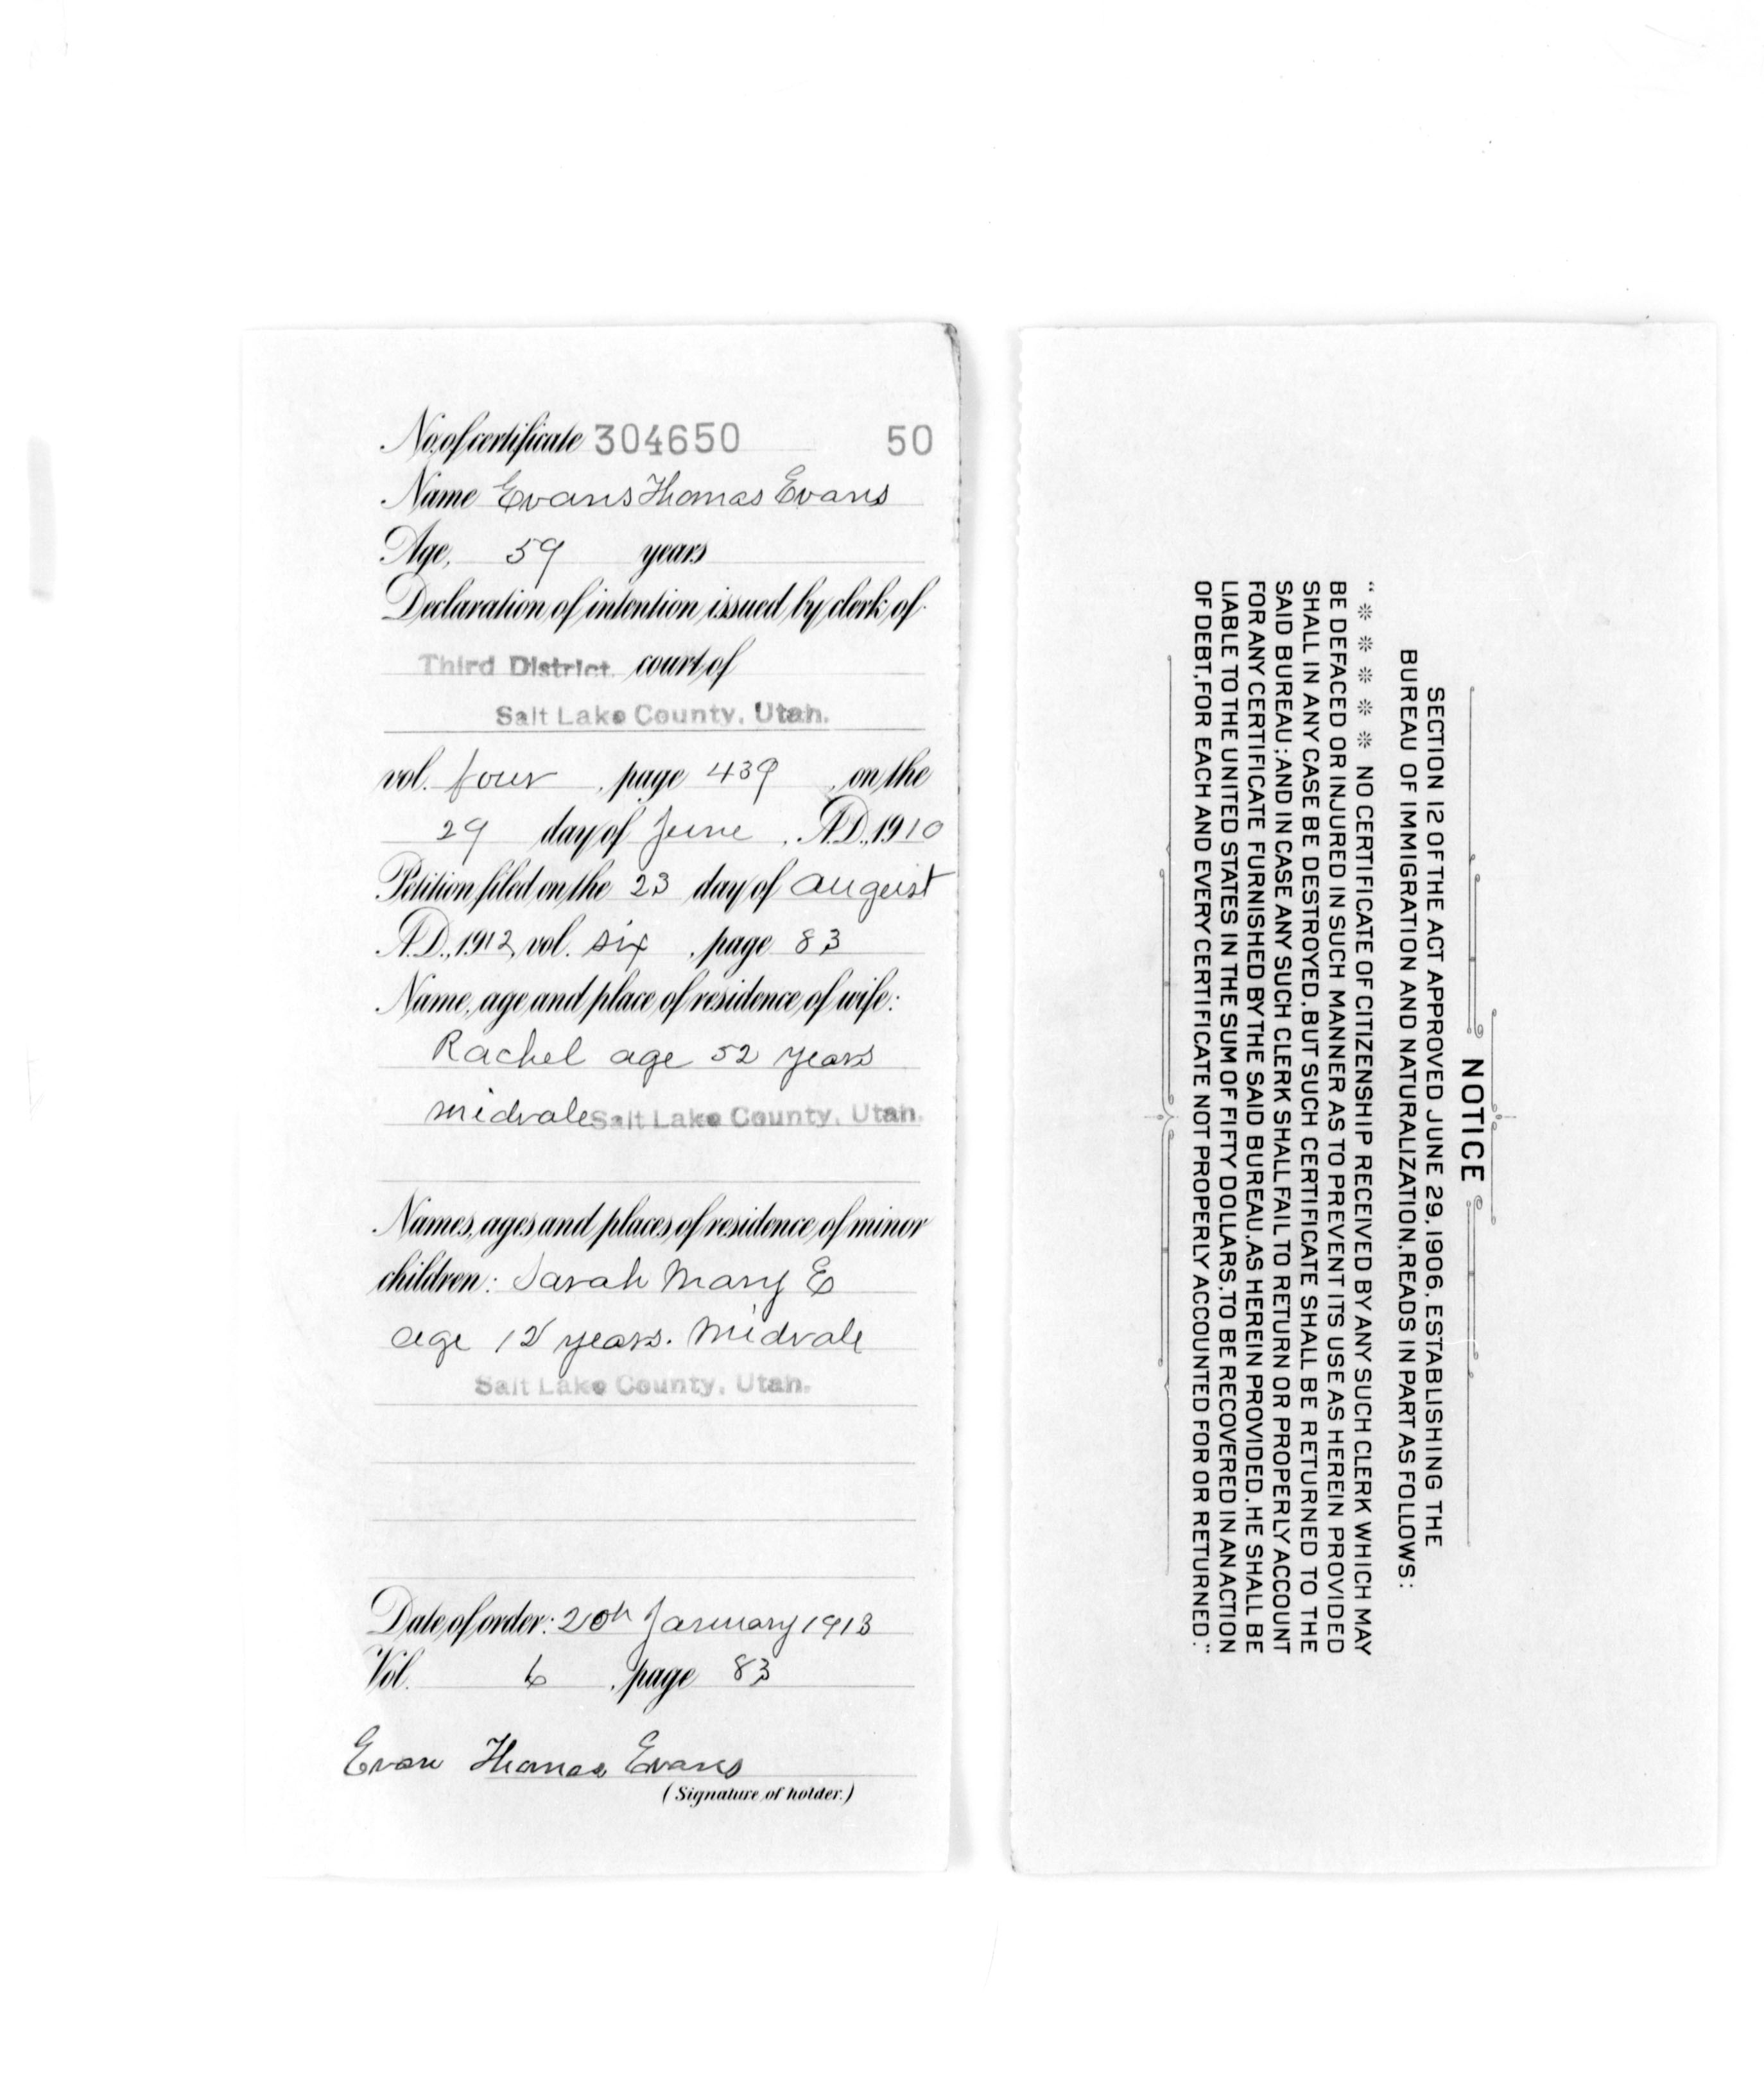 No. of certificate 304650 50
Name Evans Thomas Evans
Age, 59 years
Declaration of intention issued by clerk of
Third District court of
Salt Lake County, Utah.
vol. four, page 439, on the
29 day of June, A.D., 1910
Petition filed on the 23 day of August
A.D., 1912, vol. six, page 83
Name, age and place of residence of wife:
Rachel age 52 years
Midvale Salt Lake County, Utah.
Names, ages and places of residence of minor
children: Sarah Mary E
age 12 years. Midvale
Salt Lake County, Utah.
Date of order: 20th January 1913
Vol. 6, page 83
Evan Thomas Evans
(Signature of holder.)
NOTICE
SECTION 12 OF THE ACT APPROVED JUNE 29, 1906, ESTABLISHING THE
BUREAU OF IMMIGRATION AND NATURALIZATION, READS IN PART AS FOLLOWS:
“ * * * * * NO CERTIFICATE OF CITIZENSHIP RECEIVED BY ANY SUCH CLERK WHICH MAY
BE DEFACED OR INJURED IN SUCH MANNER AS TO PREVENT ITS USE AS HEREIN PROVIDED
SHALL IN ANY CASE BE DESTROYED, BUT SUCH CERTIFICATE SHALL BE RETURNED TO THE
SAID BUREAU; AND IN CASE ANY SUCH CLERK SHALL FAIL TO RETURN OR PROPERLY ACCOUNT
FOR ANY CERTIFICATE FURNISHED BY THE SAID BUREAU, AS HEREIN PROVIDED, HE SHALL BE
LIABLE TO THE UNITED STATES IN THE SUM OF FIFTY DOLLARS, TO BE RECOVERED IN AN ACTION
OF DEBT, FOR EACH AND EVERY CERTIFICATE NOT PROPERLY ACCOUNTED FOR OR RETURNED.”